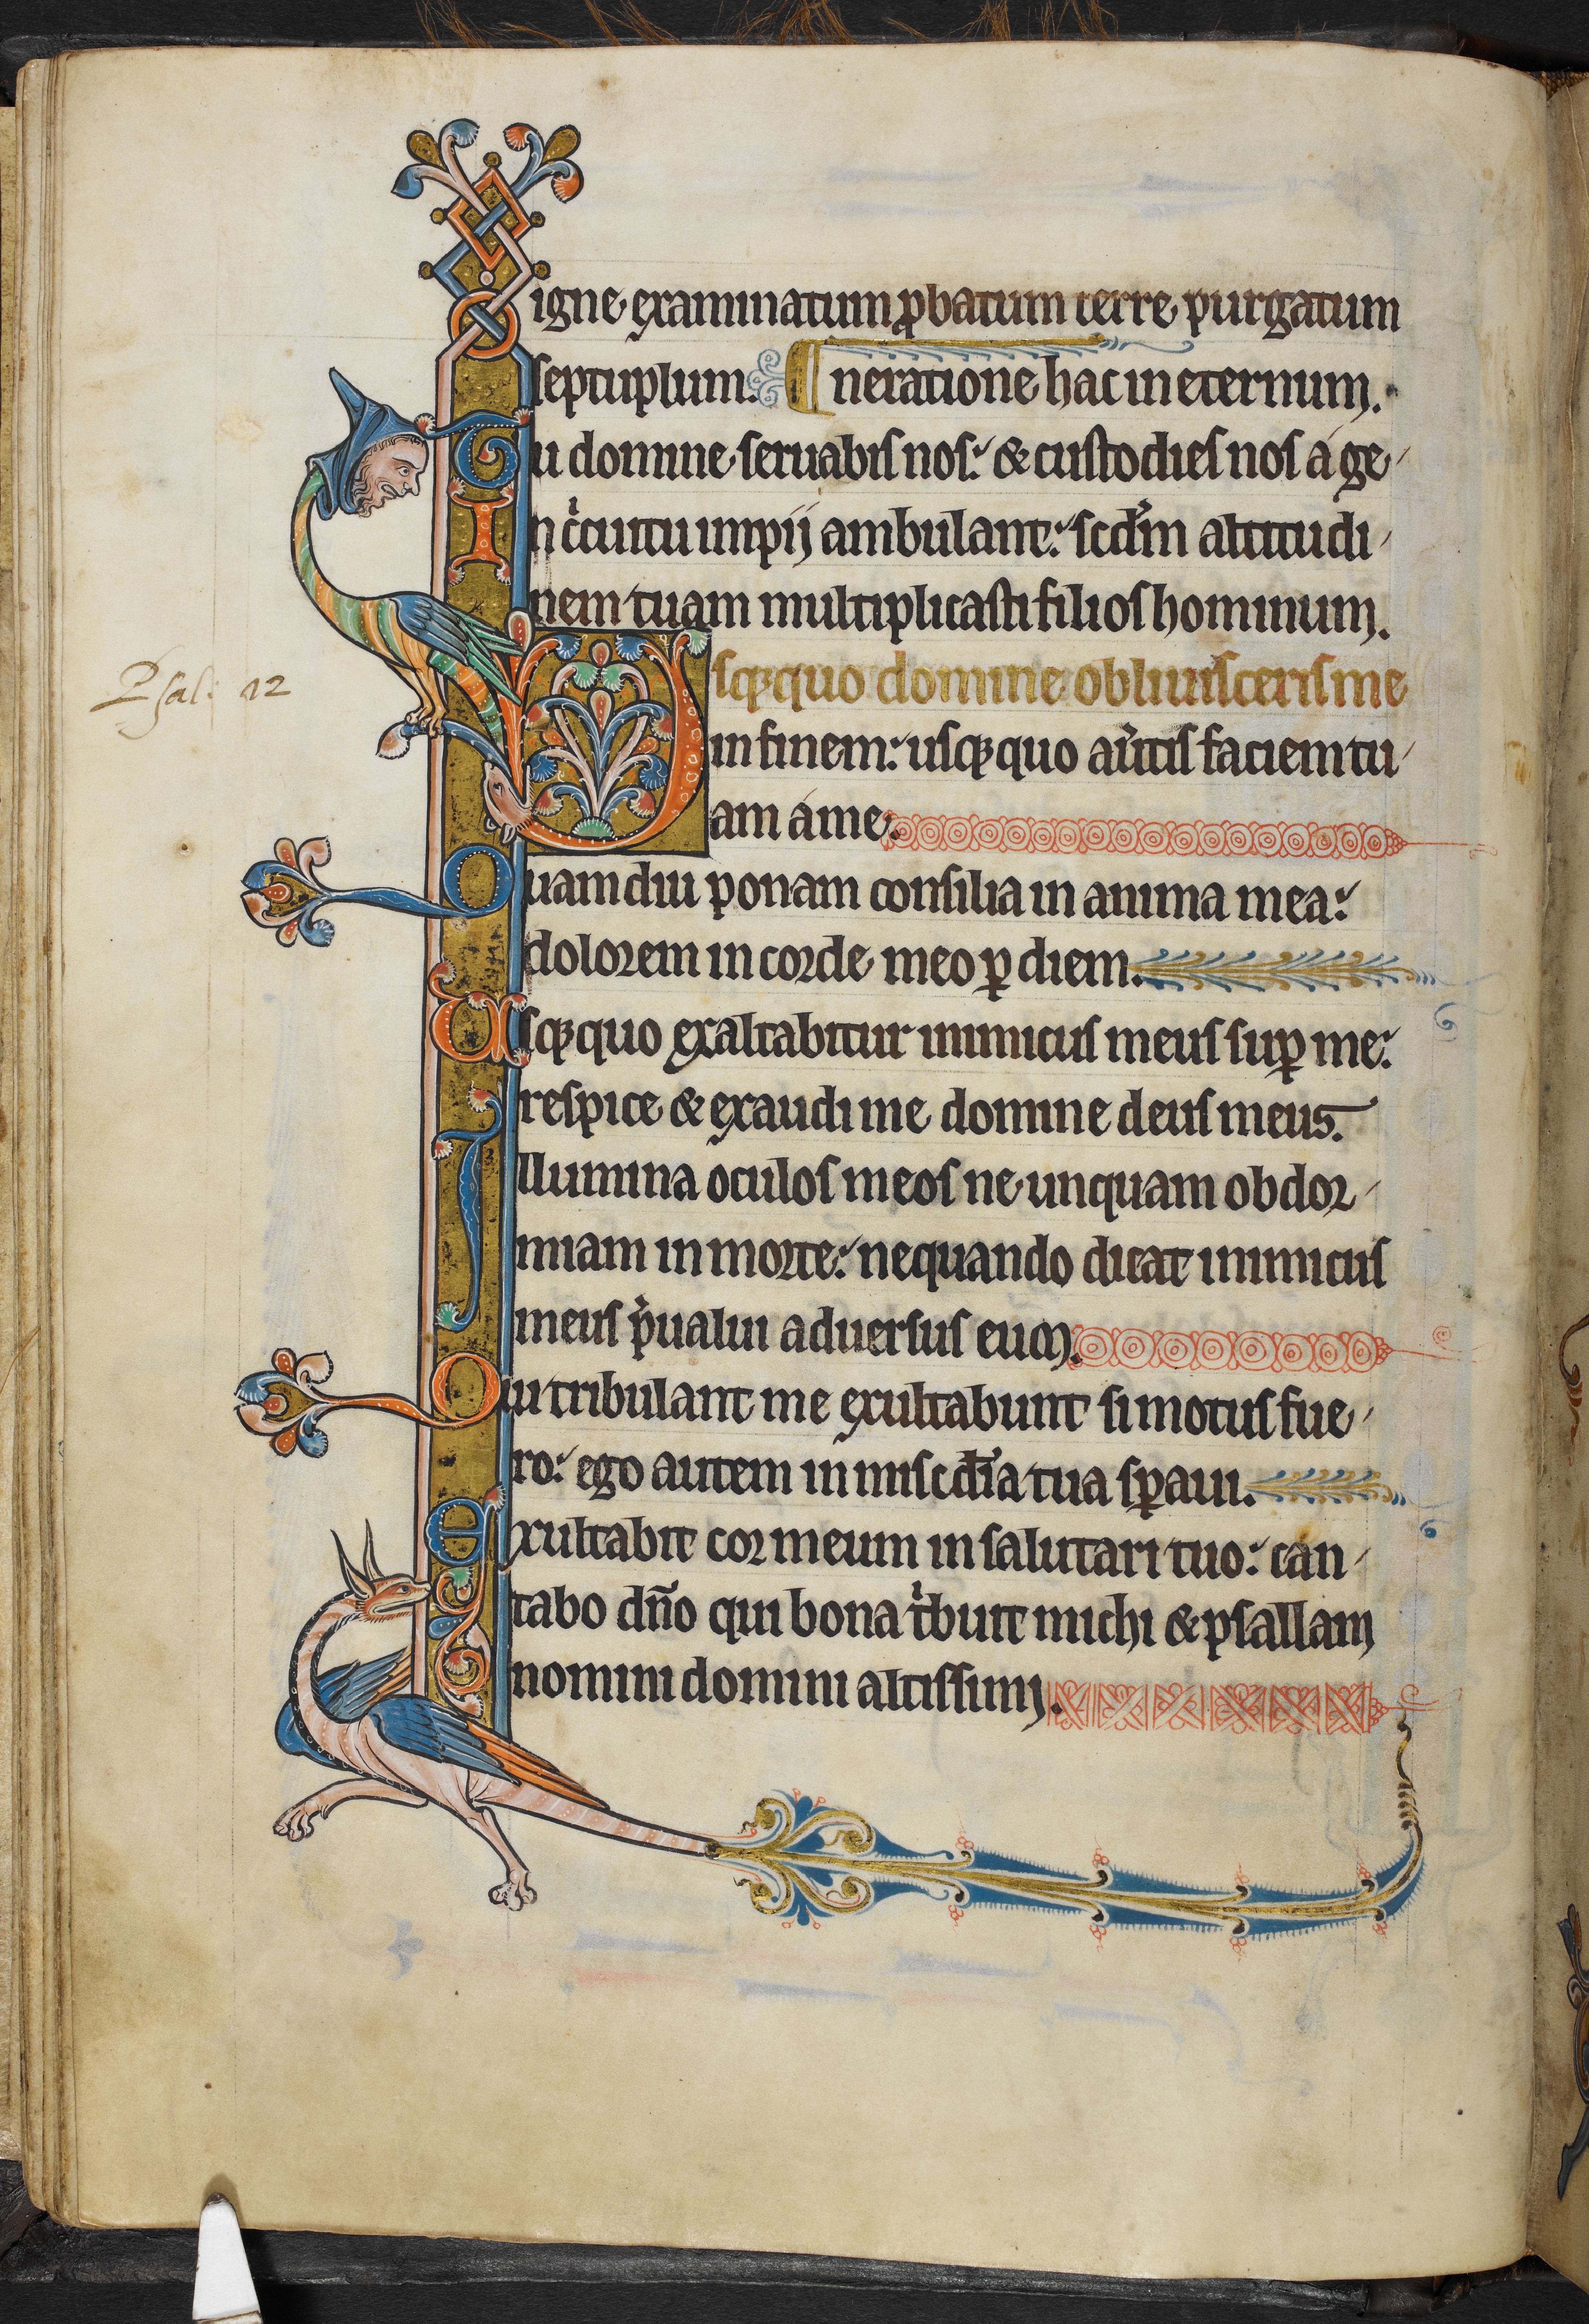 igne examinatum ꝓbatum terre purgatum
septuplum. neratione hac in eternum.
Tu domine seruabis nos: & custodies nos a ge
In circuitu impij ambulant: scdm altitudi
nem tuam multiplicasti filios hominum.
Usqꝫquo domine obliuisceris me
Psal: 12
in finem: usqꝫquo auertis faciem tu
am a me.
Quamdiu ponam consilia in anima mea:
dolorem in corde meo ꝑ diem.
Usqꝫquo exaltabitur inimicus meus suꝑ me:
respice & exaudi me domine deus meus.
Illumina oculos meos ne unquam obdor
miam in morte: nequando dicat inimicus
meus preualui aduersus eum.
Qui tribulant me exultabunt si motus fue
ro: ego autem in miscdia tua sꝑaui.
exultabit cor meum in salutari tuo: can
tabo dño qui bona tribuit michi & psallam
nomini domini altissimi.